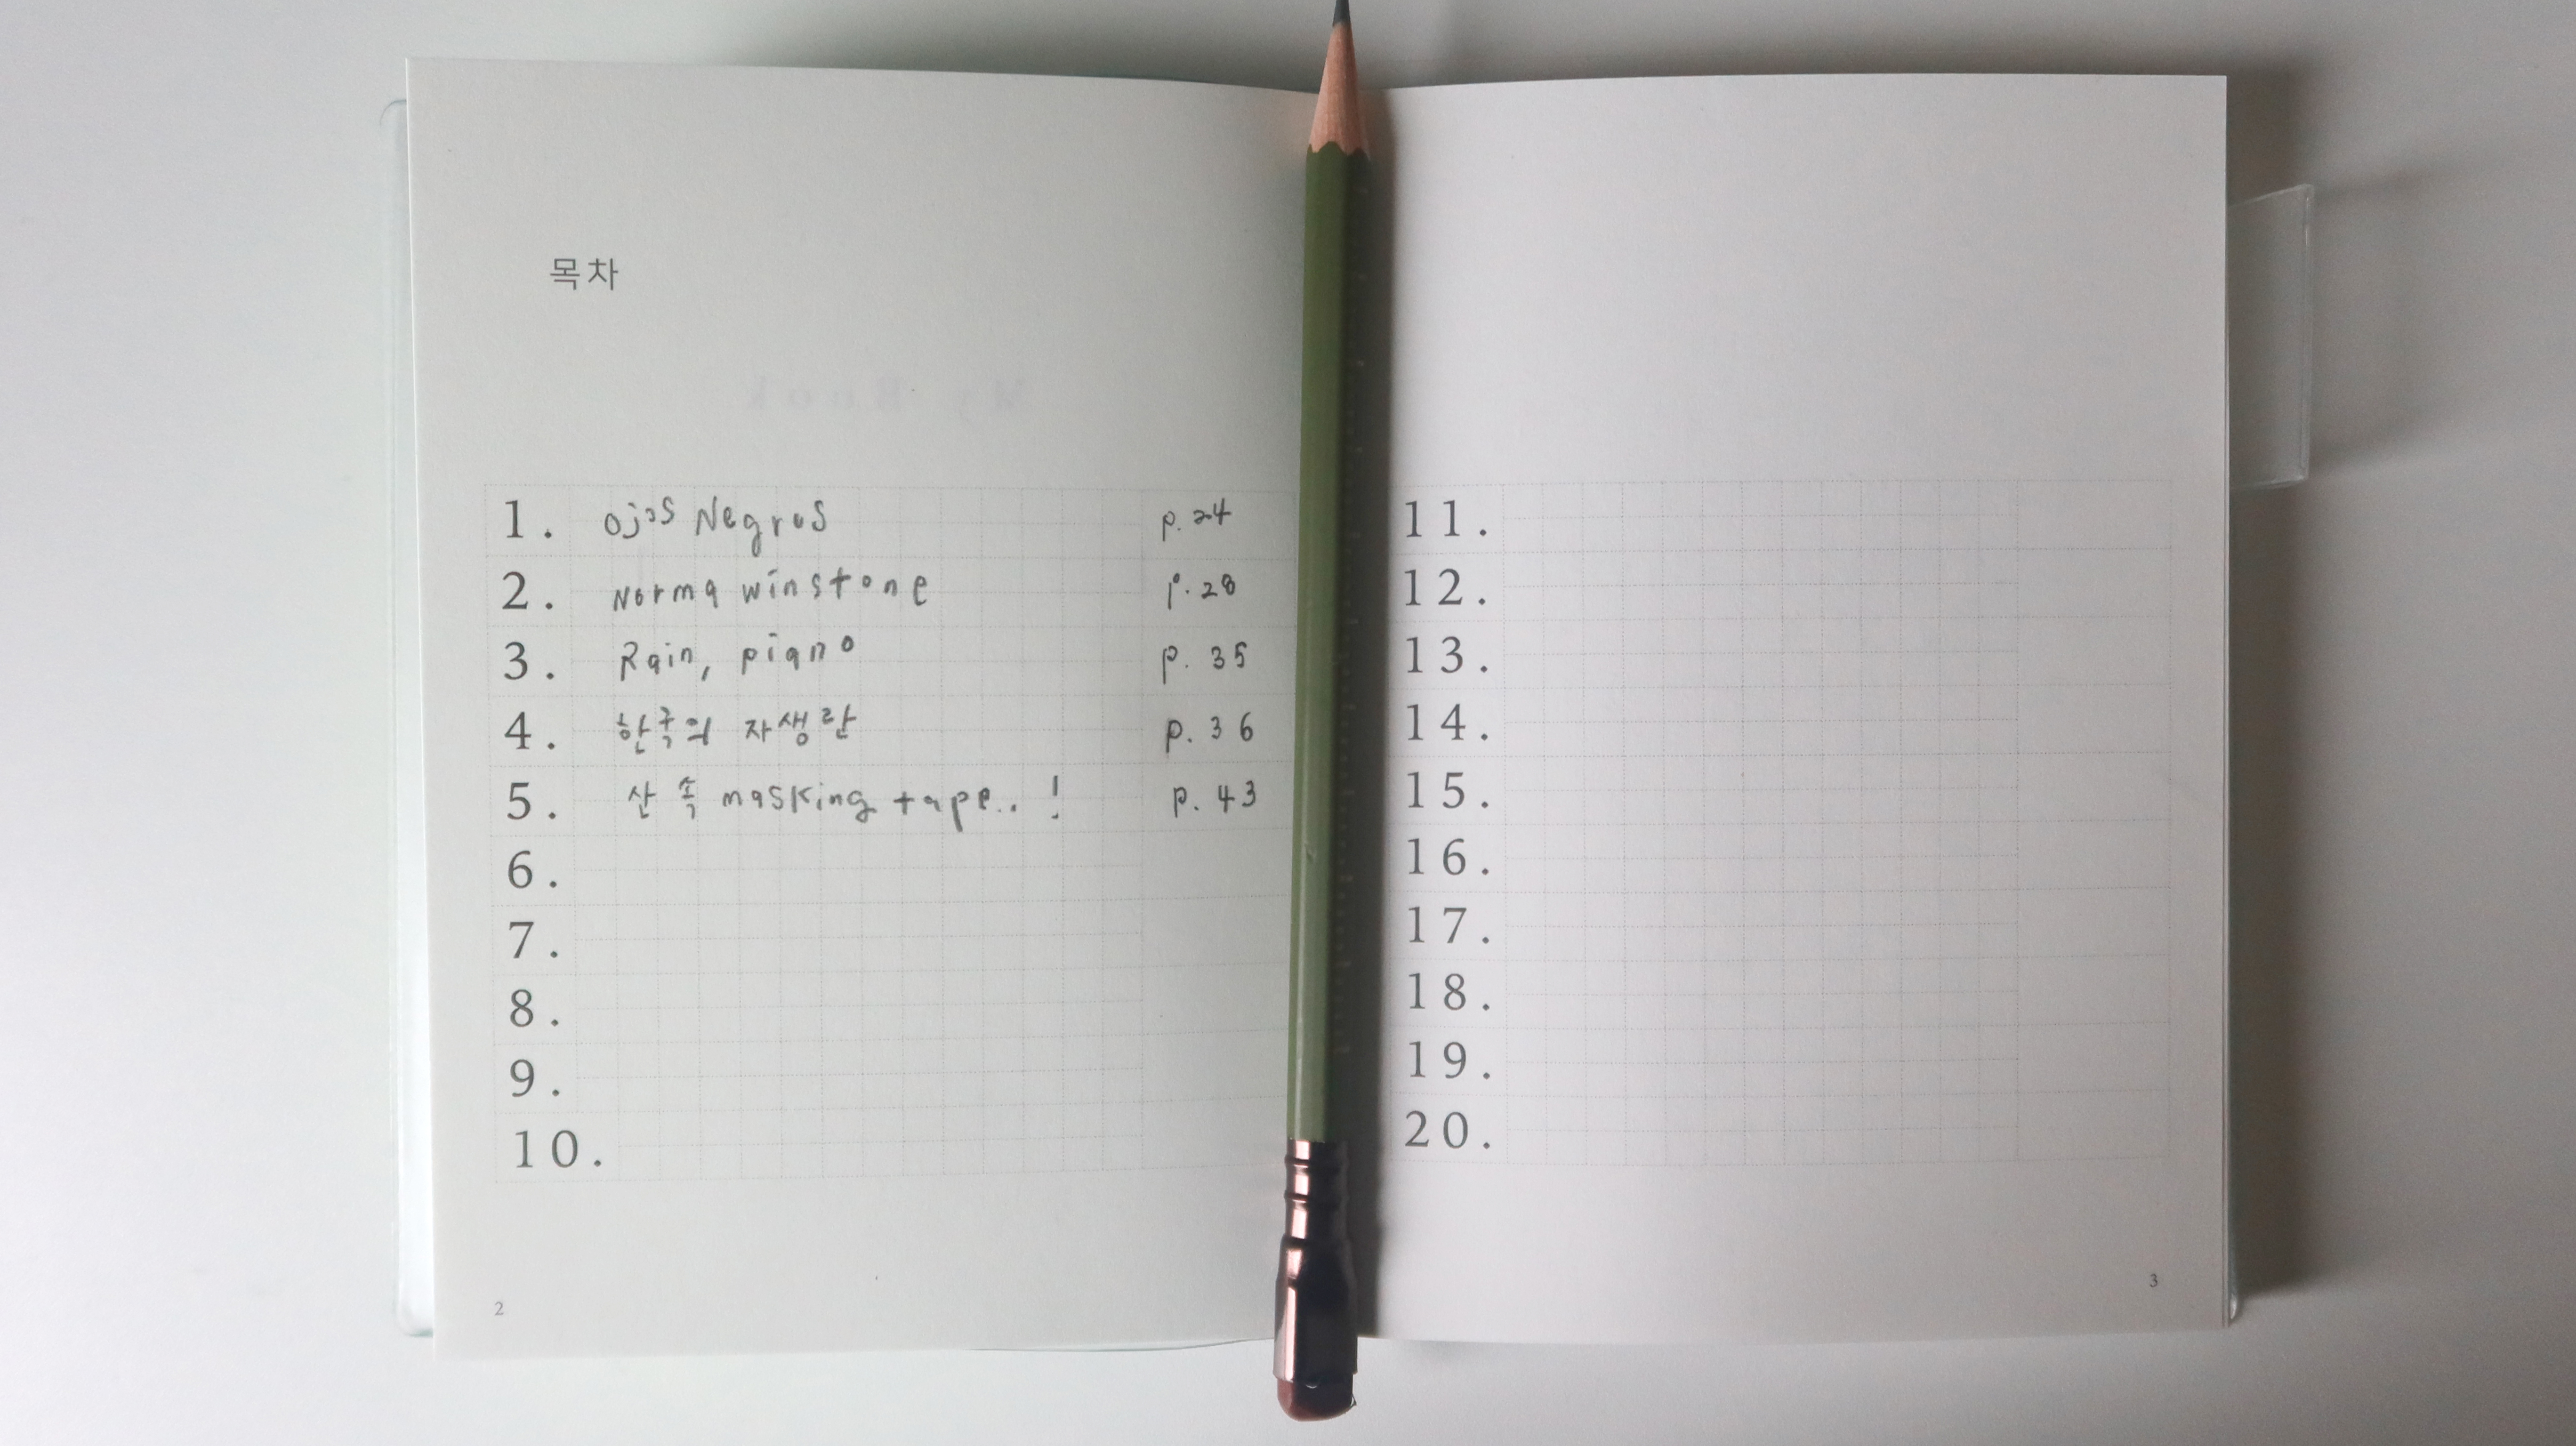 목차
1. Ojos Negros p.24
2. Norma winstone p.28
3. Rain, piano p. 35
4. 한국의 자생란 p. 36
5. 산 속 masking tape.. ! p. 43
6.
7.
8.
9.
10.
2
11.
12.
13.
14.
15.
16.
17.
18.
19.
20.
3